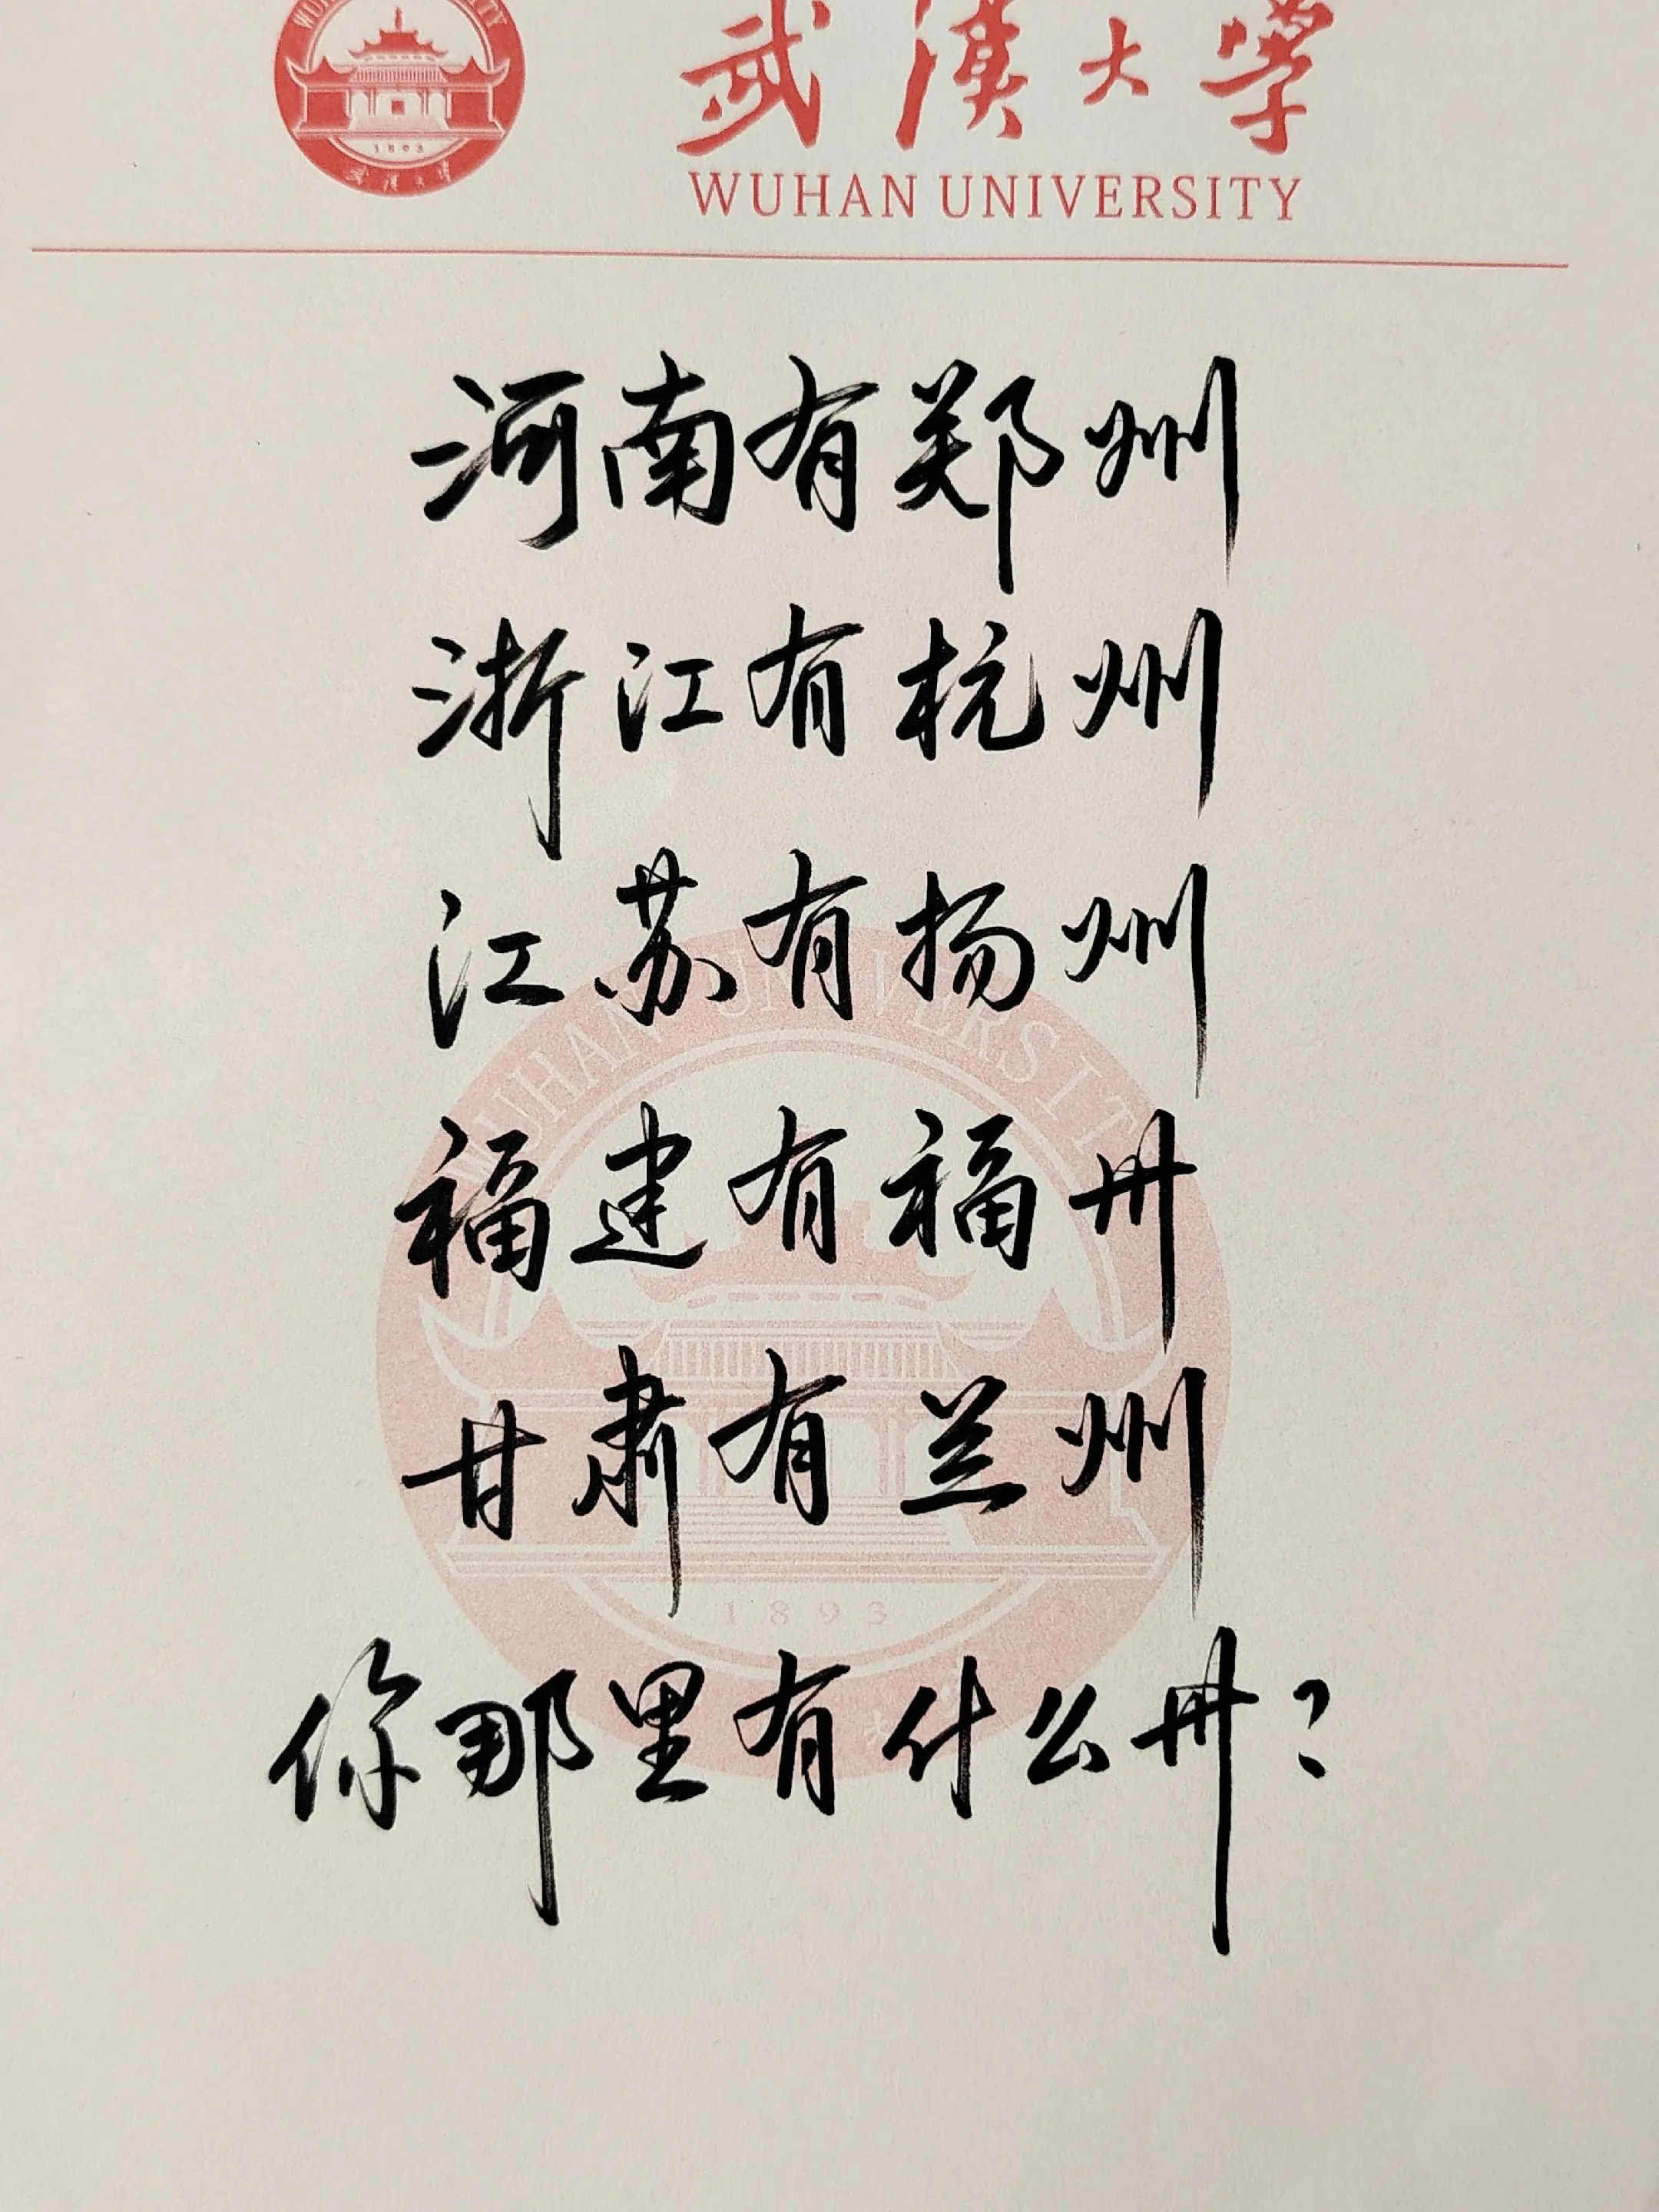 武漢大学
WUHAN UNIVERSITY
1893
河南有郑州
浙江有杭州
江苏有扬州
福建有福州
甘肃有兰州
你那里有什么州?
WUHAN UNIVERSIT
1893